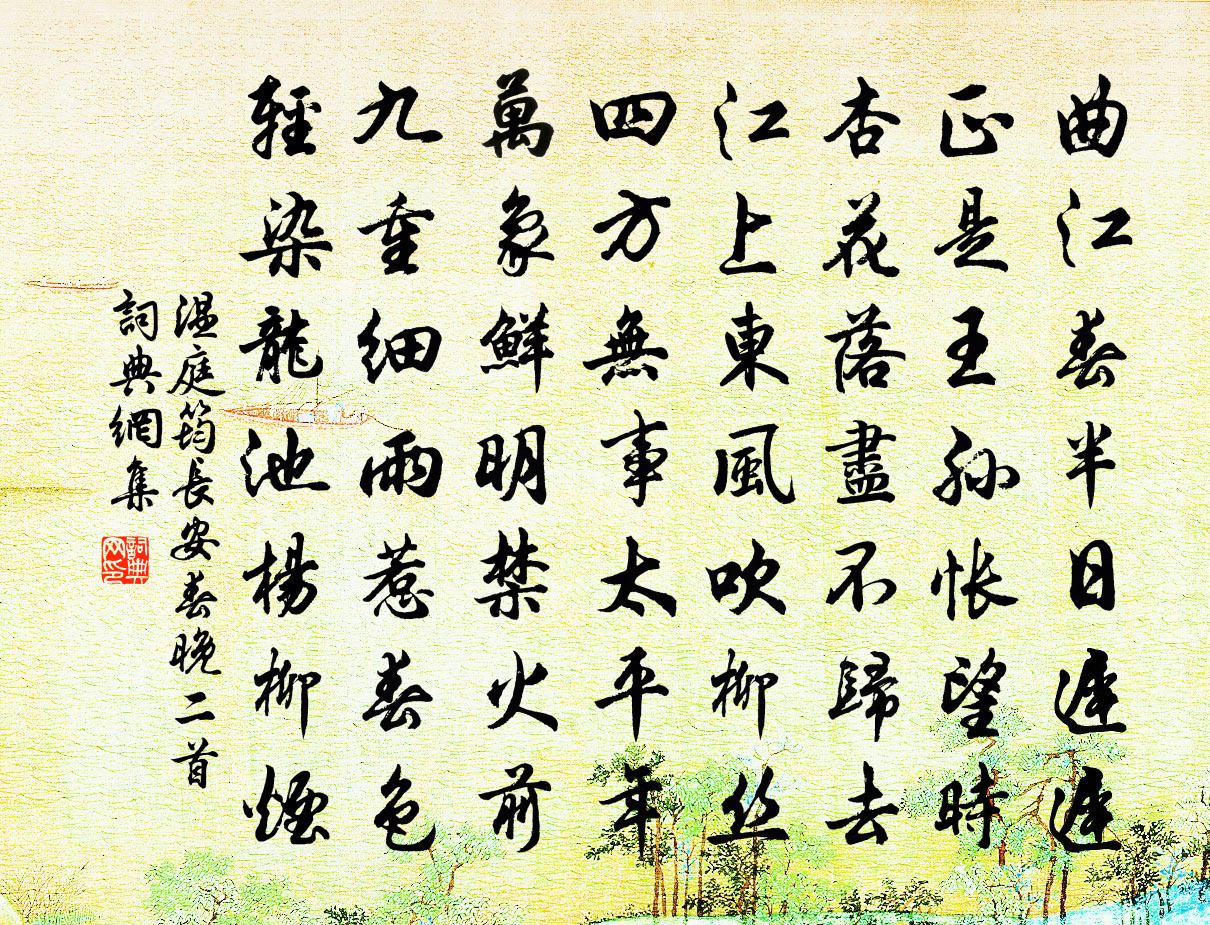 曲江春半日遲遲
正是王孫悵望時
杏花落盡不歸去
江上東風吹柳丝
四方無事太平年
萬象鮮明禁火前
九重細雨惹春色
輕染龍池楊柳煙
温庭筠長安春晚二首
詞典網集
詞典网印